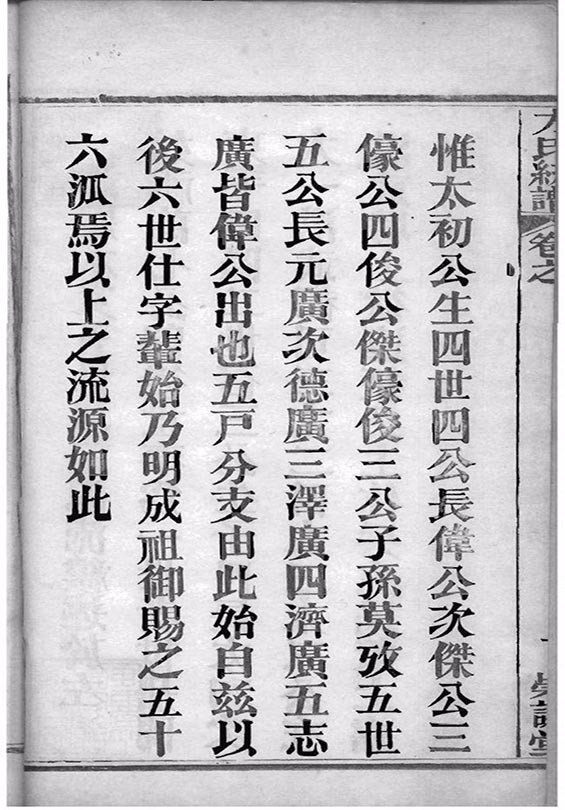 惟太初公生四世四公長偉公次傑公三
儫公四俊公傑儫俊三公子孫莫攷五世
五公長元廣次德廣三澤廣四濟廣五志
廣皆偉公出也五戸分支由此始自兹以
後六世仕字輩始乃明成祖御賜之五十
六派焉以上之流源如此